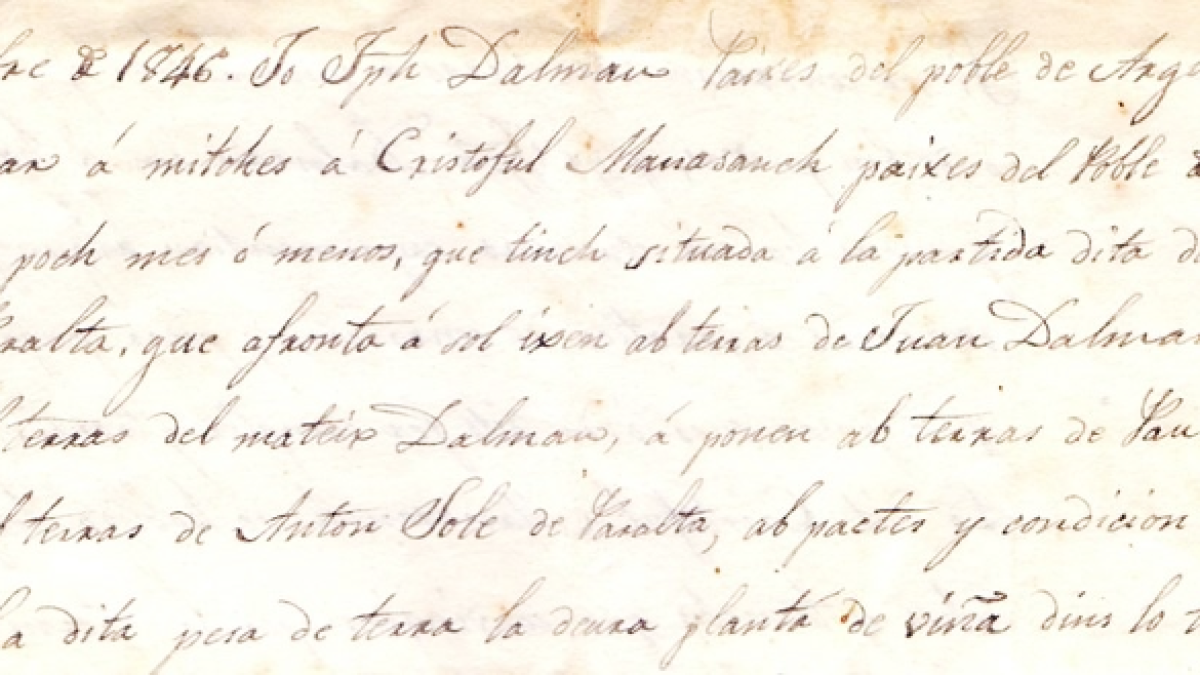 bre de 1846. Jo Jph Dalmau Paixes del poble de Arge
ar á mitches á Cristoful Manasanch paixes del Poble de
poch mes ó menos, que tinch situada á la partida dita d
ralta, que afronta á sol ixen ab terras de Juan Dalmau
terras del mateix Dalmau, á ponen ab terras de Pau
terras de Anton Sole de Paralta, ab pactes y condicion
la dita pesa de terra la deura plantá de viña dins lo t